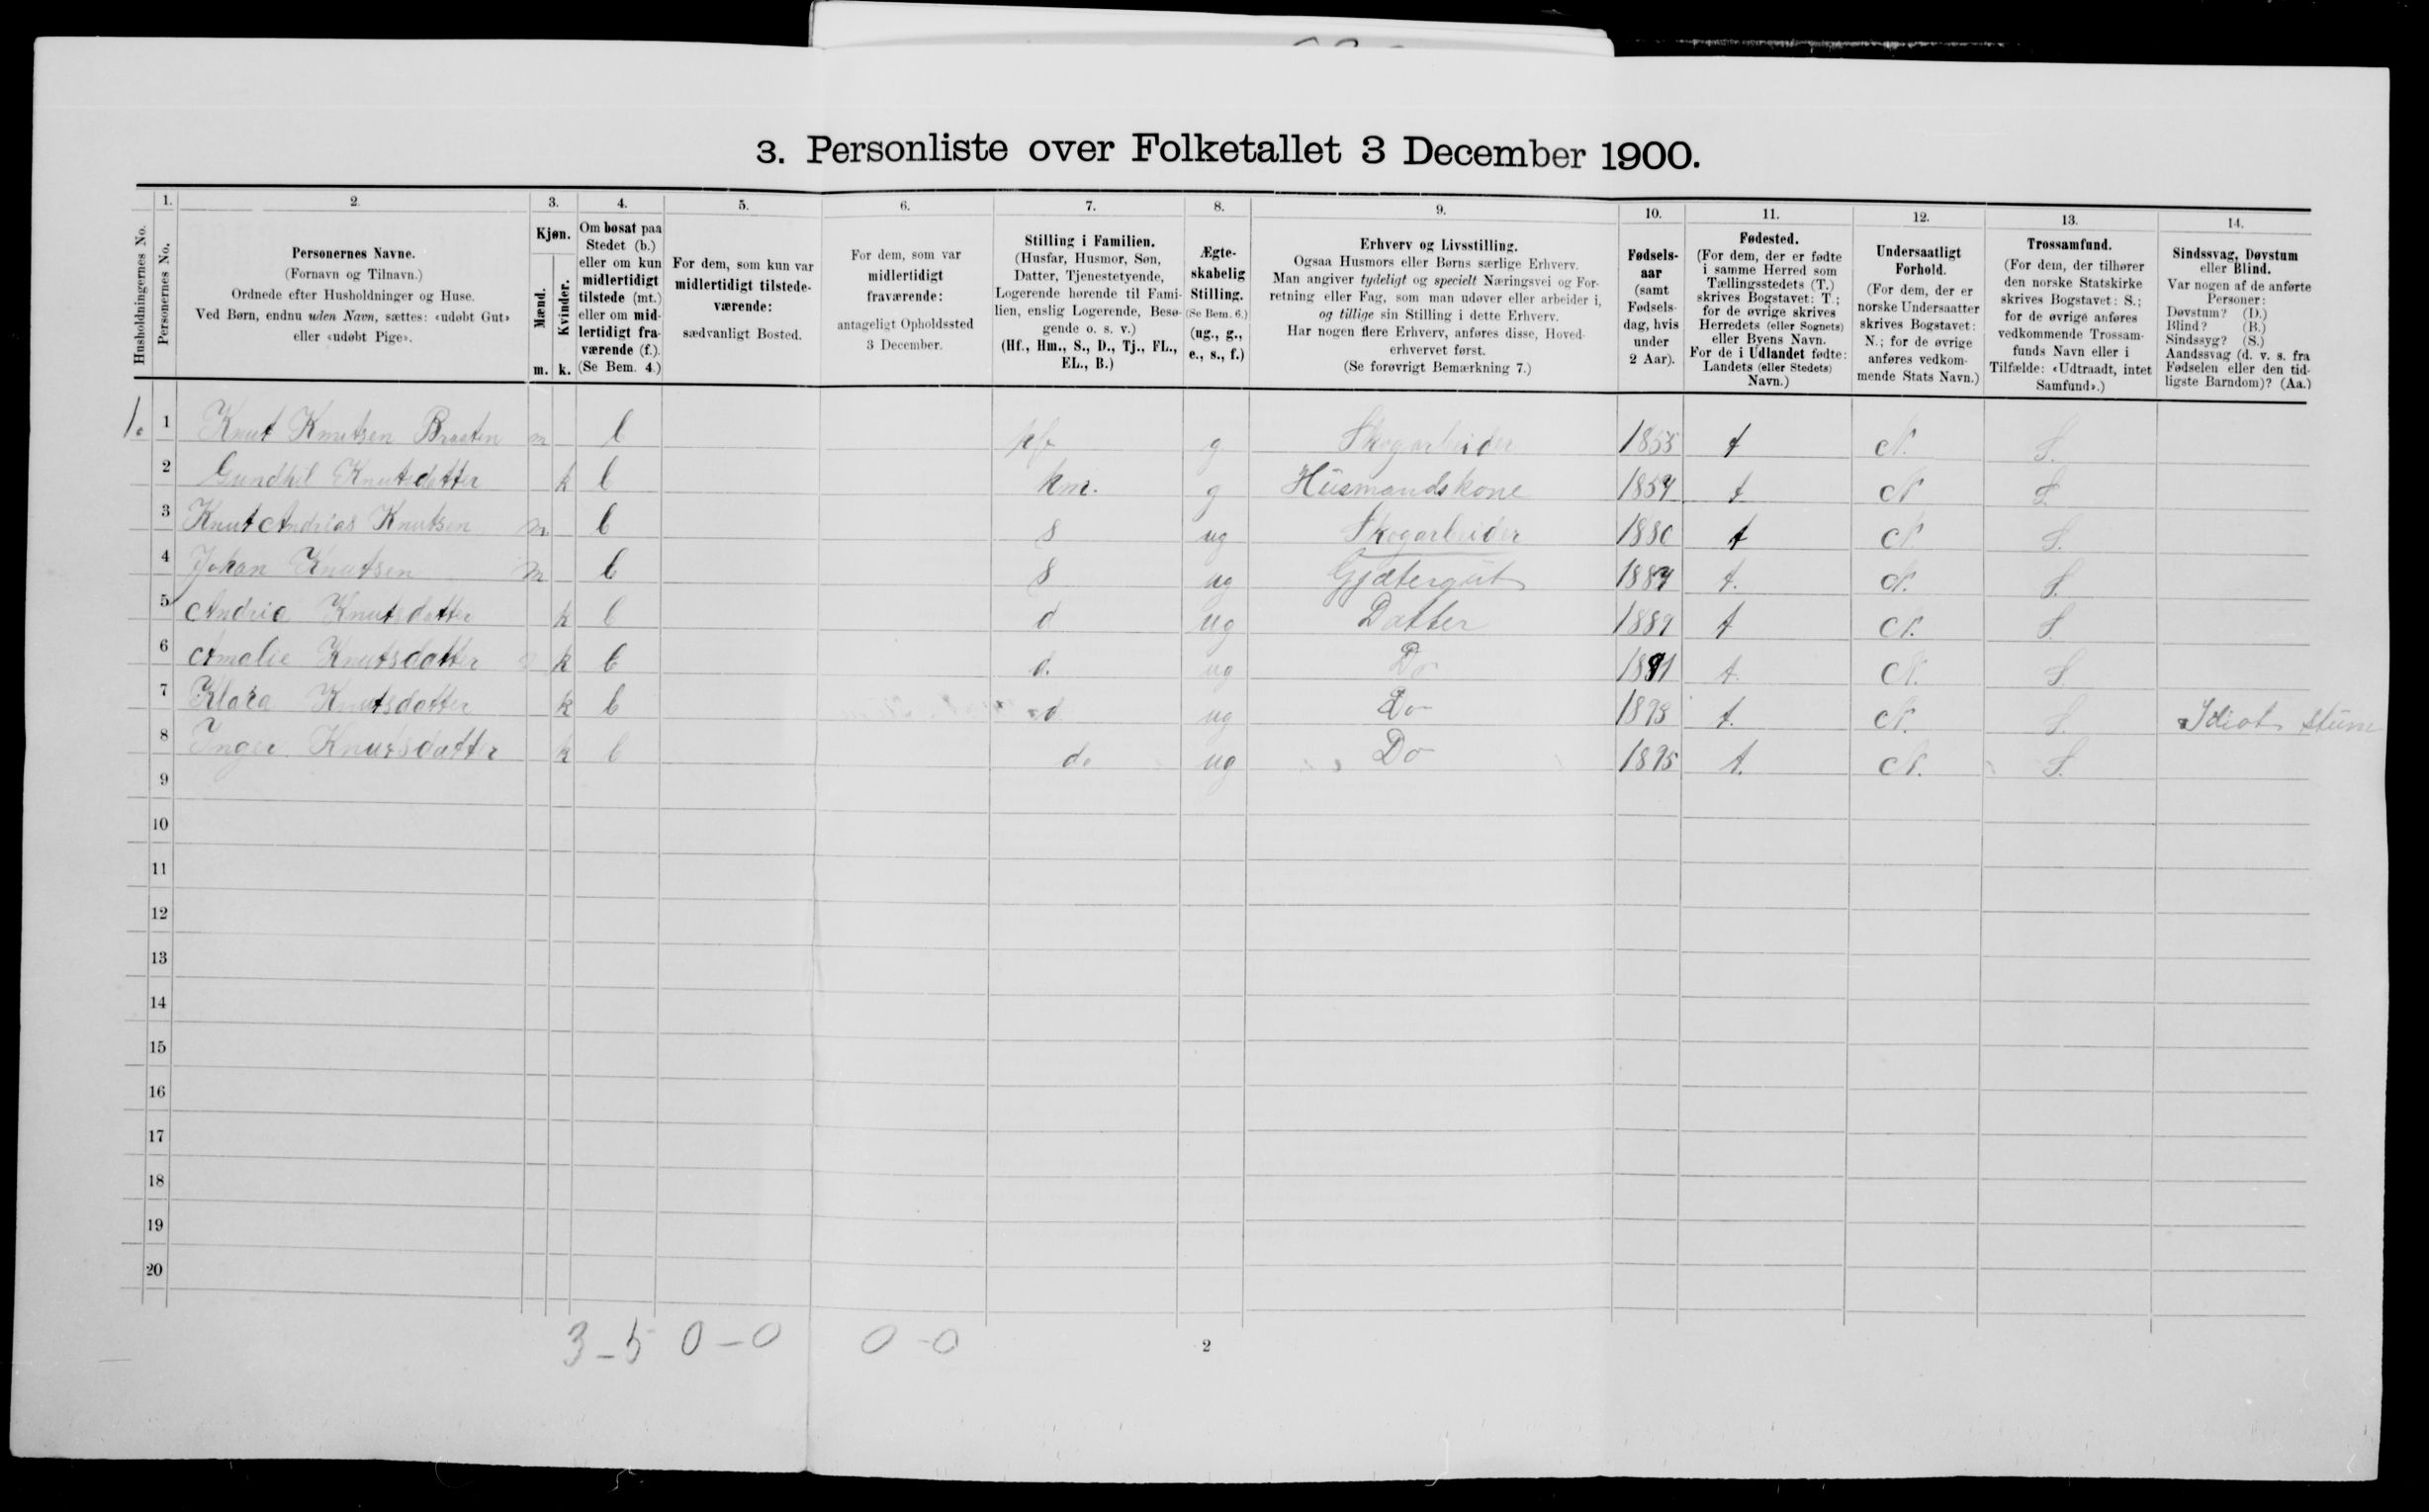 3. Personliste over Folketallet 3 December 1900.
Husholdningernes No.
1.
Personernes No.
2.
Personernes Navne.
(Fornavn og Tilnavn.)
Ordnede efter Husholdninger og Huse.
Ved Børn, endnu uden Navn, sættes: «udøbt Gut»
eller «udøbt Pige».
3.
Kjøn.
Mænd.
Kvinder.
m. k.
4.
Om bosat paa
Stedet (b.)
eller om kun
midlertidigt
tilstede (mt.)
eller om mid-
lertidigt fra-
værende (f.).
(Se Bem. 4.)
5.
For dem, som kun var
midlertidigt tilstede-
værende:
sædvanligt Bosted.
6.
For dem, som var
midlertidigt
fraværende:
antageligt Opholdssted
3 December.
7.
Stilling i Familien.
(Husfar, Husmor, Søn,
Datter, Tjenestetyende,
Logerende hørende til Fami-
lien, enslig Logerende, Besø-
gende o. s. v.)
(Hf., Hm., S., D., Tj., FL.,
EL., B.)
8.
Ægte-
skabelig
Stilling.
(Se Bem. 6.)
(ug., g.,
e., s., f.)
9.
Erhverv og Livsstilling.
Ogsaa Husmors eller Børns særlige Erhverv.
Man angiver tydeligt og specielt Næringsvei og For-
retning eller Fag, som man udøver eller arbeider i,
og tillige sin Stilling i dette Erhverv.
Har nogen flere Erhverv, anføres disse, Hoved-
erhvervet først.
(Se forøvrigt Bemærkning 7.)
10.
Fødsels-
aar
(samt
Fødsels-
dag, hvis
under
2 Aar).
11.
Fødested.
(For dem, der er fødte
i samme Herred som
Tællingsstedets (T.)
skrives Bogstavet: T.;
for de øvrige skrives
Herredets (eller Sognets)
eller Byens Navn.
For de i Udlandet fødte:
Landets (eller Stedets)
Navn.)
12.
Undersaatligt
Forhold.
(For dem, der er
norske Undersaatter
skrives Bogstavet:
N.; for de øvrige
anføres vedkom-
mende Stats Navn.)
13.
Trossamfund.
(For dem, der tilhører
den norske Statskirke
skrives Bogstavet: S.;
for de øvrige anføres
vedkommende Trossam-
funds Navn eller i
Tilfælde: «Udtraadt, intet
Samfund».)
14.
Sindssvag, Døvstum
eller Blind.
Var nogen af de anførte
Personer:
Døvstum? (D.)
Blind? (B.)
Sindssyg? (S.)
Aandssvag (d. v. s. fra
Fødselen eller den tid-
ligste Barndom)? (Aa.)
1. 1 Knut Knutsen Braaten m b hf. g Skogarbeider 1855 t N. S.
2 Gundhil Knutsdatter k b hm. g Husmandskone t N S
3 Knut Andrias Knutsen m b s ug Skogarbeider 1880 t N. S.
4 Johan Knutsen m b s ug Gjætergut t. N. S.
5 Andria Knutsdatter k b d ug Datter 1889 t N. S.
6 Amalie Knutsdatter k b d. ug Do t. N. S
7 Klara Knutsdatter k b d ug Do 1893 t. N. S. Idiot stum
8 Inger Knutsdatter k b d. ug Do 1895 t. N. S.
9
10
11
12
13
14
15
16
17
18
19
20
3-5 0-0 0-0
2